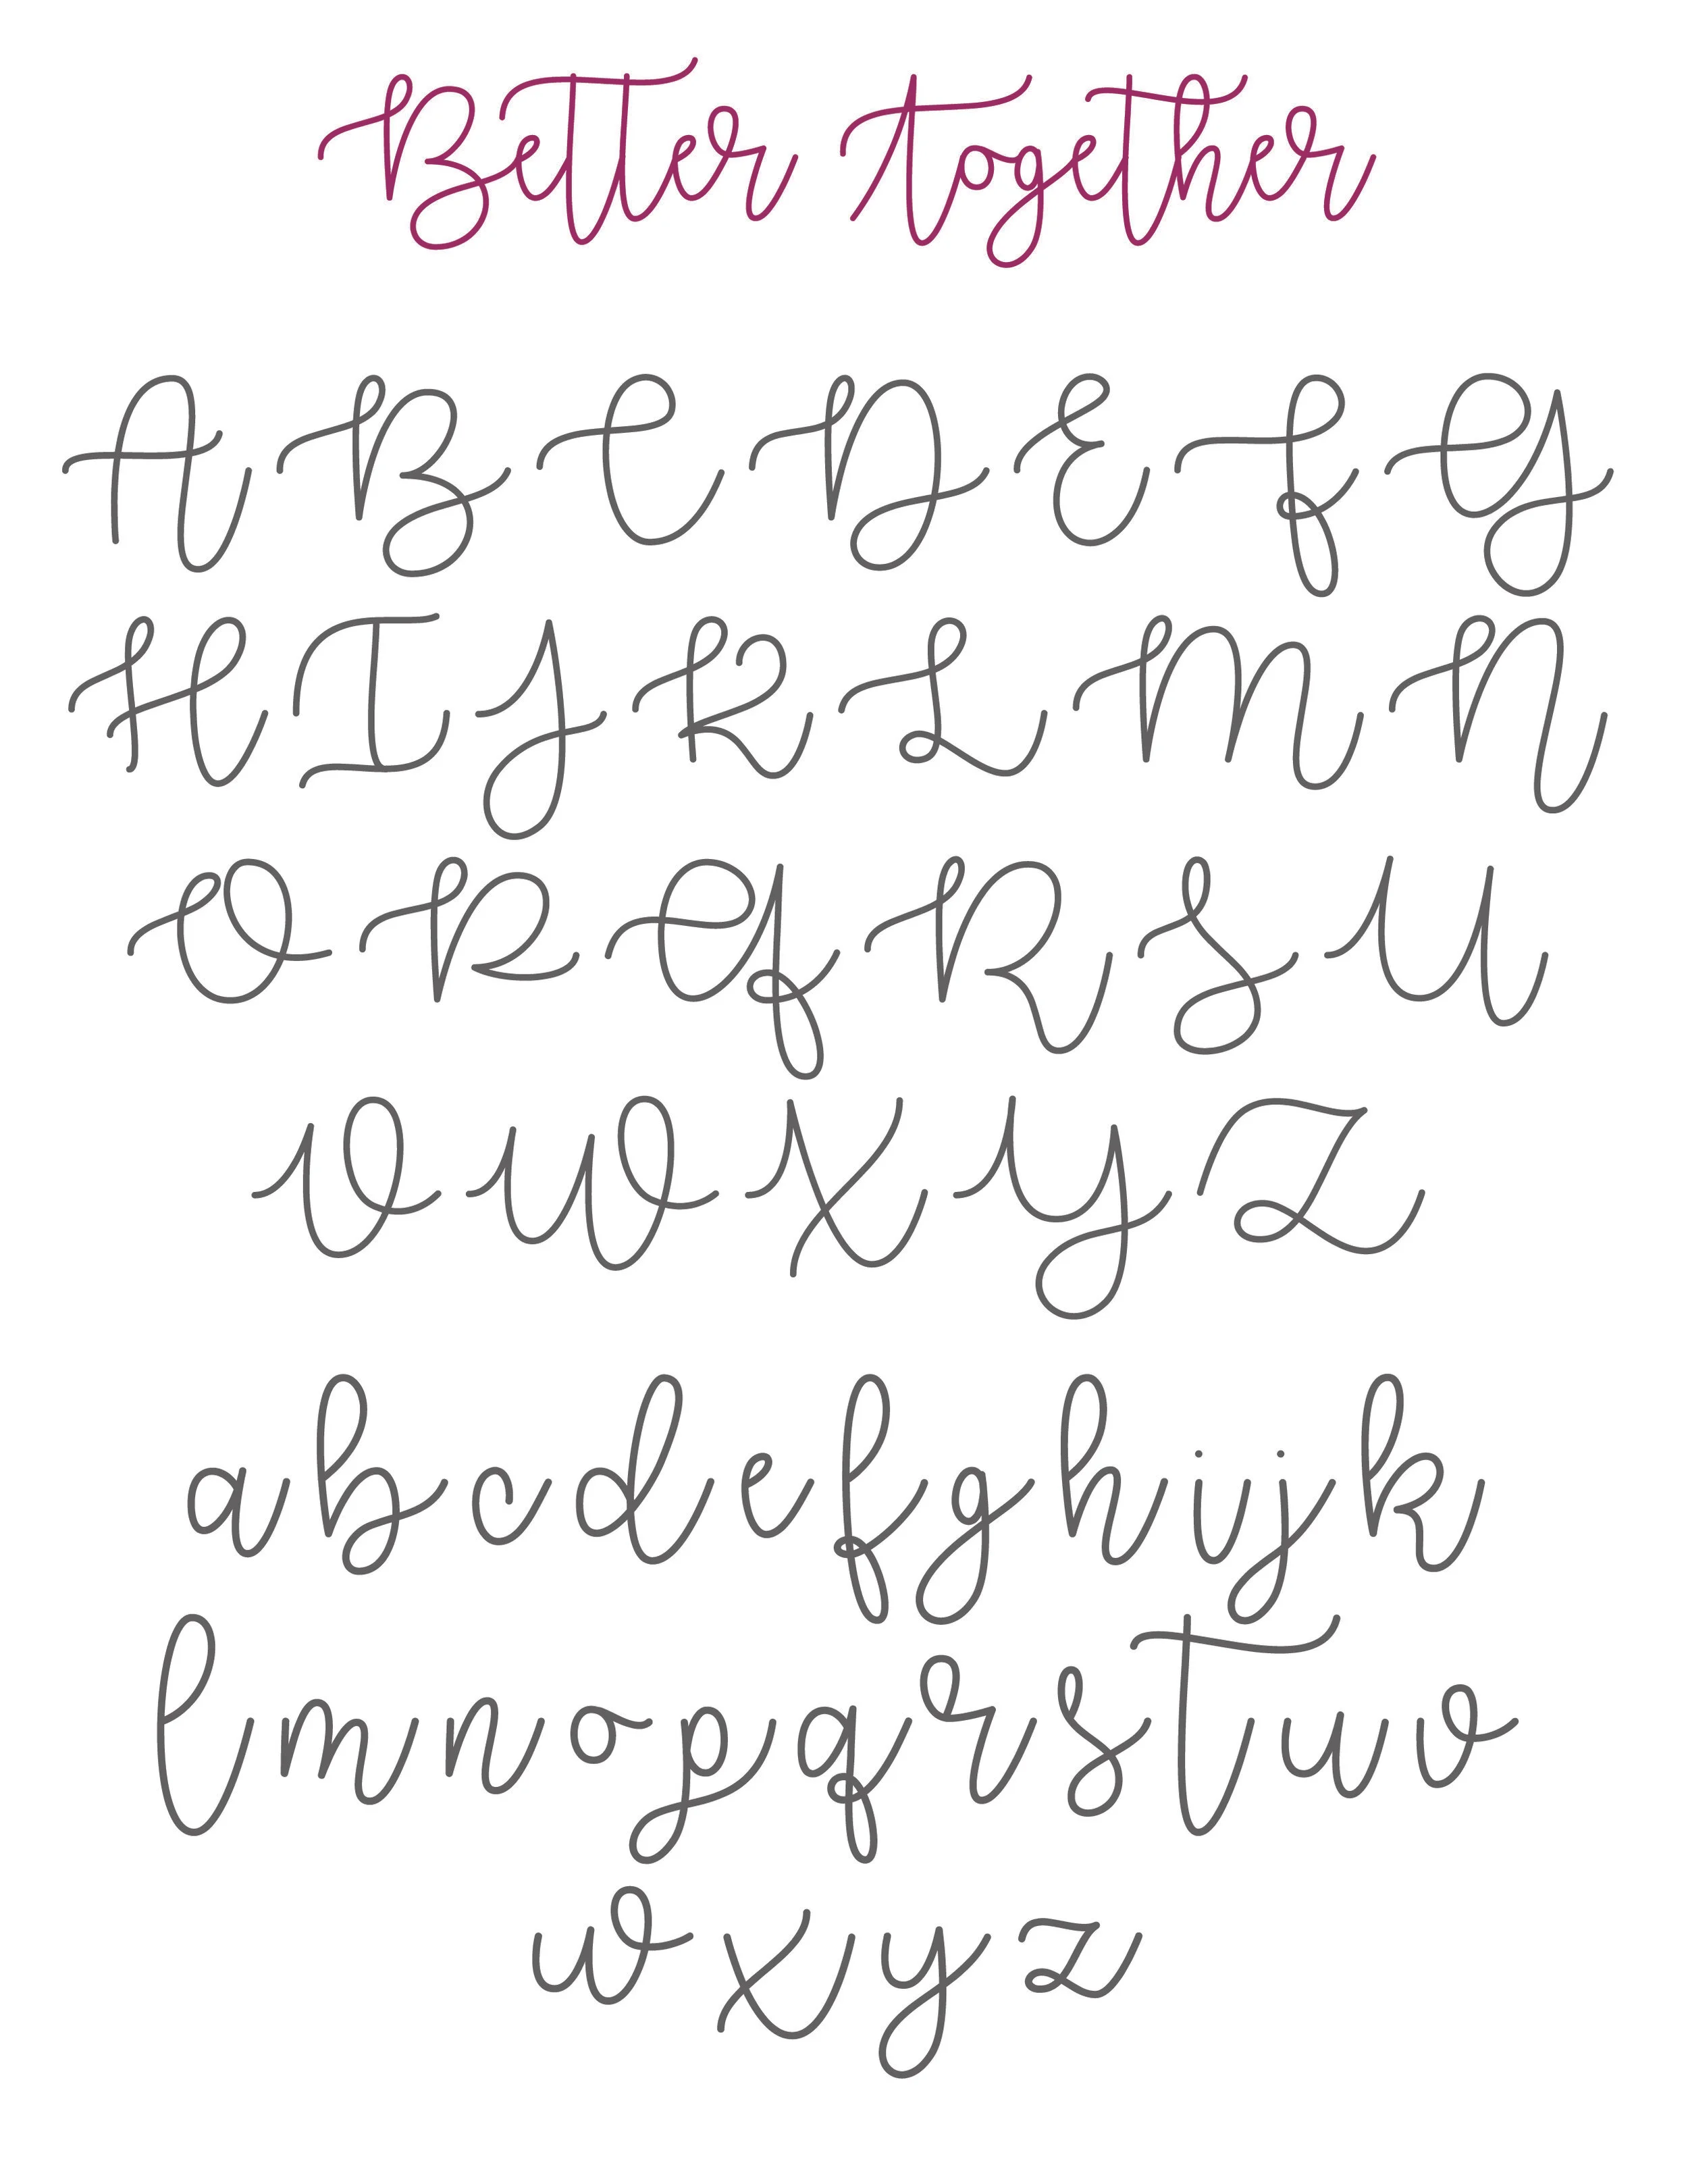 Better Together
A B C D E F G
H I J K L M N
O P Q R S U
V W X Y Z
a b c d e f g h i j k
l m n o p q r s t u v
w x y z